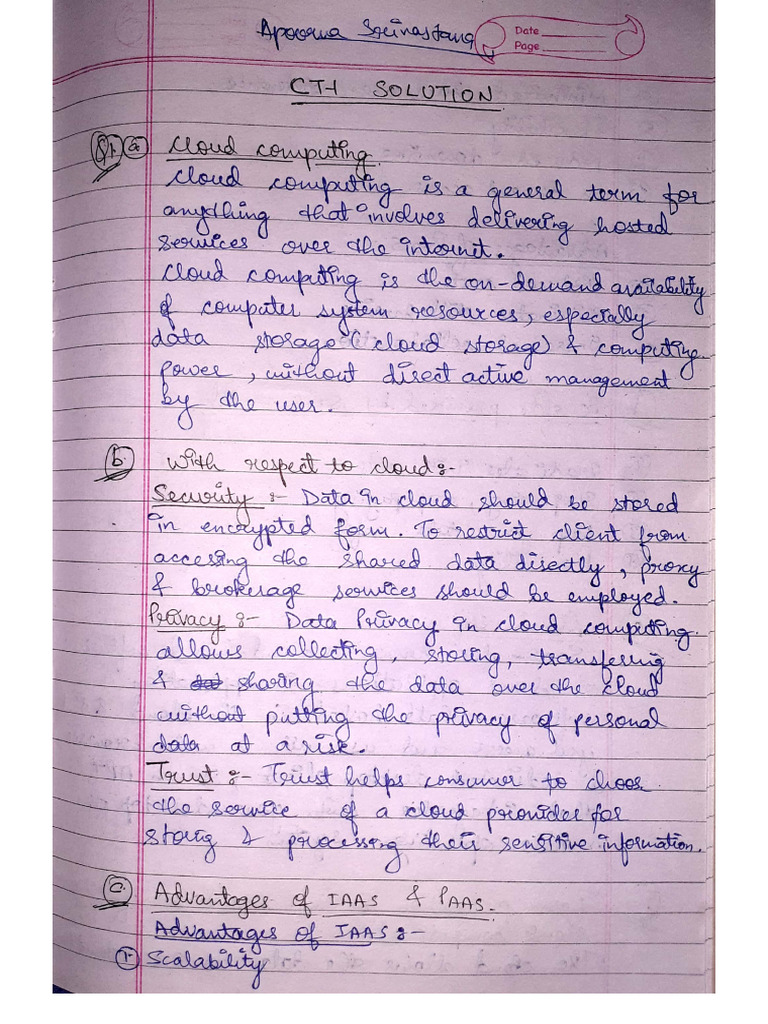 Apoorva Srivastava
Date
Page
CT-1 SOLUTION
Q1. a Cloud computing.
Cloud computing is a general term for
anything that involves delivering hosted
services over the internet.
Cloud computing is the on-demand availability
of computer system resources, especially
data storage (cloud storage) & computing
power, without direct active management
by the user.
b. With respect to cloud :-
Security :- Data in cloud should be stored
in encrypted form. To restrict client from
accesing the shared data directly, proxy
& brokerage services should be employed.
Privacy :- Data Privacy in cloud computing
allows collecting, storing, transferring
& sharing the data over the cloud
without putting the privacy of personal
data at a risk.
Trust :- Trust helps consumer to choose
the service of a cloud provider for
storig & processing their sensitive information.
c. Advantages of IAAS & PAAS.
Advantages of IAAS :-
1. Scalability